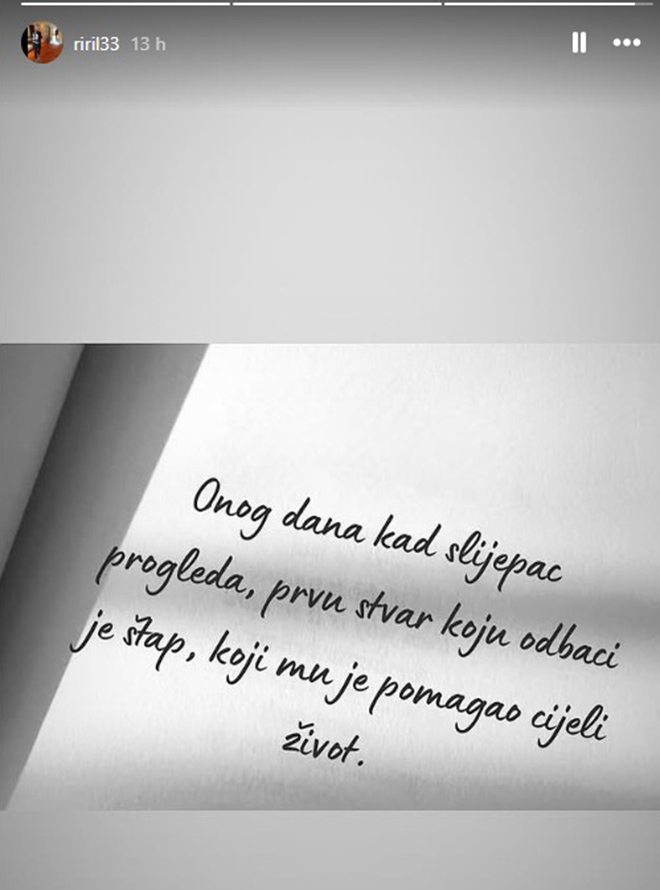 riril33 13 h
Onog dana kad slijepac
progleda, prvu stvar koju odbaci
je štap, koji mu je pomagao cijeli
život.